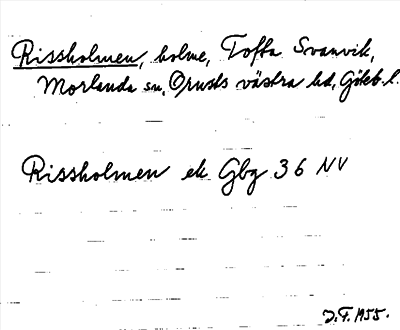 Rissholmen, holme, Tofta Svanvik,
Morlanda sn, Orusts västra hd, Göteb. l.
Rissholmen ek Gbg 36 NV
J.F. 1955.